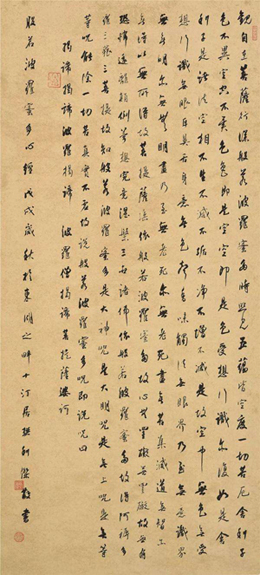 觀自在菩薩行深般若波羅蜜多時照見五蘊皆空度一切苦厄舍利子
色不異空空不異色色即是空空即是色受想行識亦復如是舍
利子是諸法空相不生不滅不垢不淨不增不減是故空中無色無受
想行識無眼耳鼻舌身意無色聲香味觸法無眼界乃至無意識界
無無明亦無無明盡乃至無老死亦無老死盡無苦集滅道無智亦
無得以無所得故菩提薩埵依般若波羅蜜多故心無罣礙無罣礙故無有恐
怖遠離顛倒夢想究竟涅槃三世諸佛依般若波羅蜜多故得阿耨多
羅三藐三菩提故知般若波羅蜜多是大神咒是大明咒是無上咒是無等
等咒能除一切苦真實不虛故說般若波羅蜜多咒即說咒曰
揭諦揭諦 波羅揭諦 波羅僧揭諦 菩提薩婆訶
般若波羅蜜多心經 戊戌歲秋於東湖之畔十汀居 書